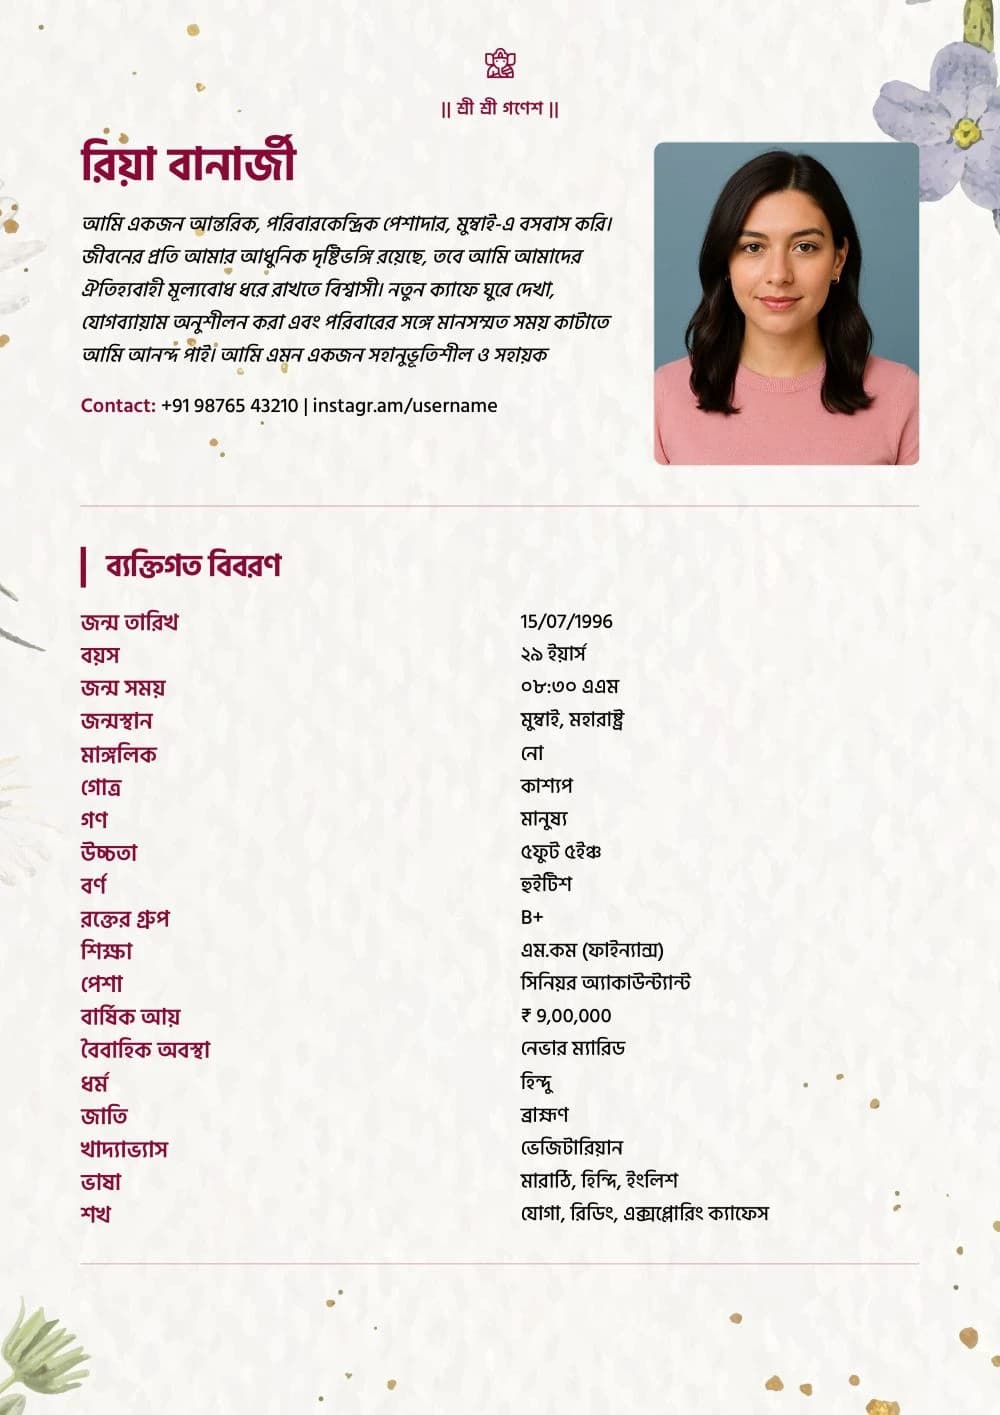 || শ্রী শ্রী গণেশ ||
রিয়া বানার্জী
আমি একজন আন্তরিক, পরিবারকেন্দ্রিক পেশাদার, মুম্বাই-এ বসবাস করি।
জীবনের প্রতি আমার আধুনিক দৃষ্টিভঙ্গি রয়েছে, তবে আমি আমাদের
ঐতিহ্যবাহী মূল্যবোধ ধরে রাখতে বিশ্বাসী। নতুন ক্যাফে ঘুরে দেখা,
যোগব্যায়াম অনুশীলন করা এবং পরিবারের সঙ্গে মানসম্মত সময় কাটাতে
আমি আনন্দ পাই। আমি এমন একজন সহানুভূতিশীল ও সহায়ক
Contact: +91 98765 43210 | instagr.am/username
ব্যক্তিগত বিবরণ
জন্ম তারিখ 15/07/1996
বয়স ২৯ ইয়ার্স
জন্ম সময় ০৮:৩০ এএম
জন্মস্থান মুম্বাই, মহারাষ্ট্র
মাঙ্গলিক নো
গোত্র কাশ্যপ
গণ মানুষ্য
উচ্চতা ৫ফুট ৫ইঞ্চ
বর্ণ হুইটিশ
রক্তের গ্রুপ B+
শিক্ষা এম.কম (ফাইন্যান্স)
পেশা সিনিয়র অ্যাকাউন্ট্যান্ট
বার্ষিক আয় ₹ 9,00,000
বৈবাহিক অবস্থা নেভার ম্যারিড
ধর্ম হিন্দু
জাতি ব্রাহ্মণ
খাদ্যাভ্যাস ভেজিটারিয়ান
ভাষা মারাঠি, হিন্দি, ইংলিশ
শখ যোগা, রিডিং, এক্সপ্লোরিং ক্যাফেস